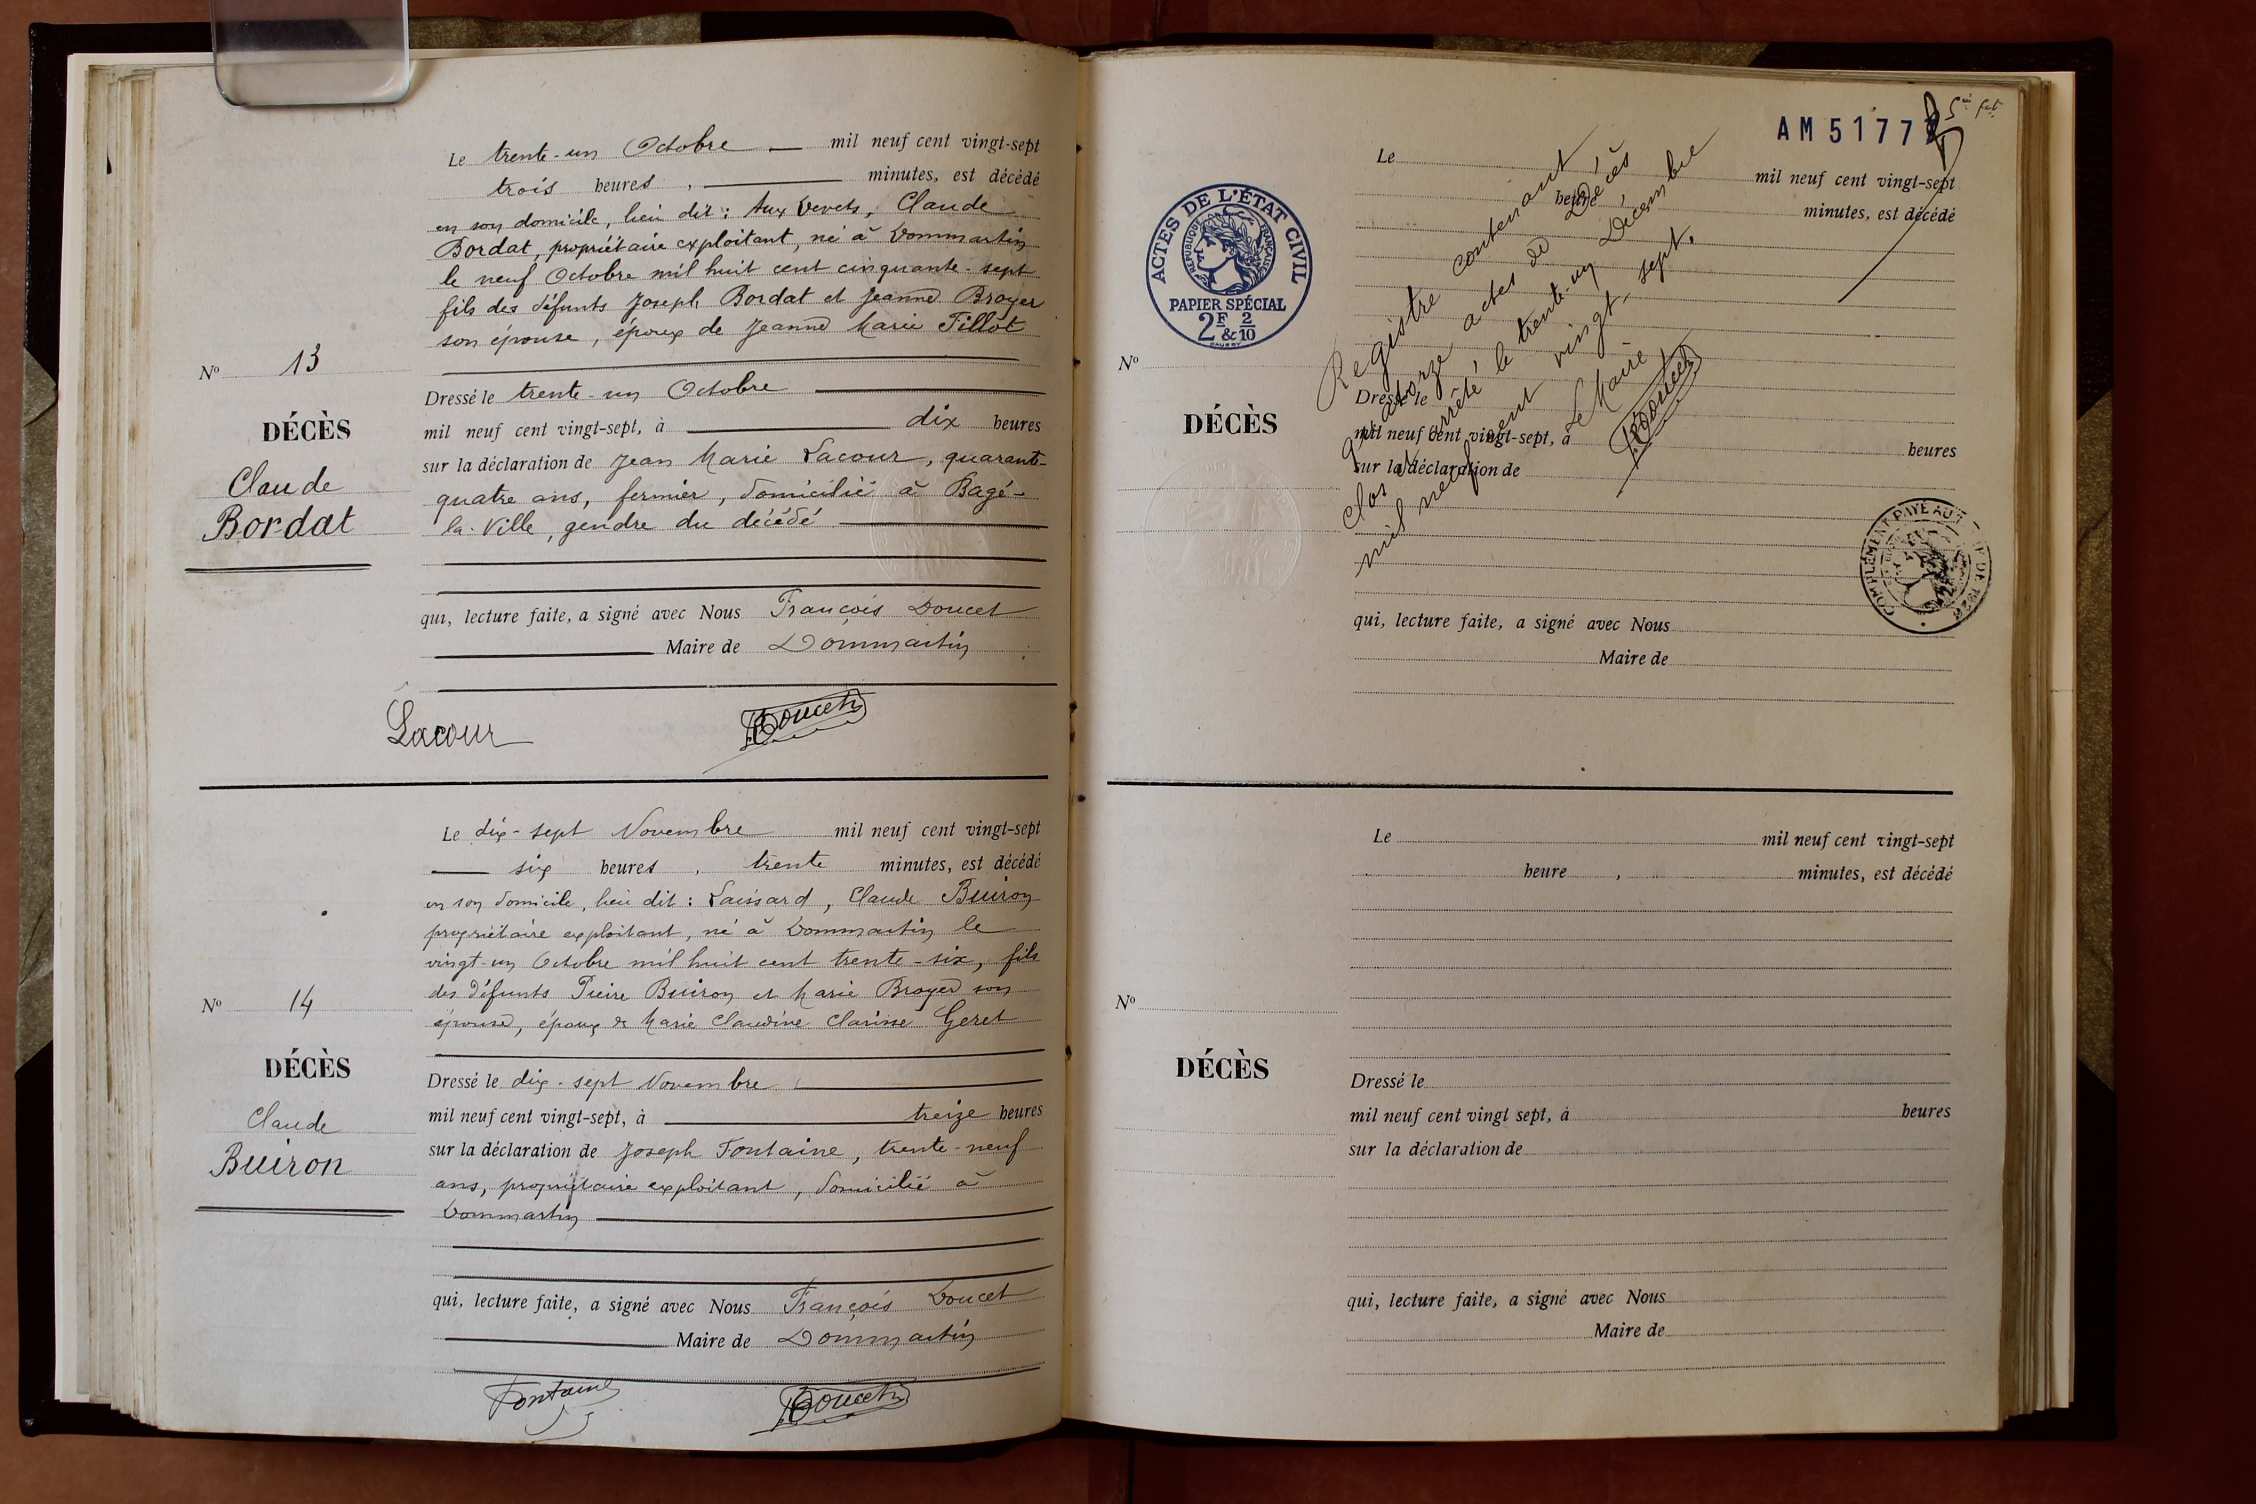 Le trente-un Octobre mil neuf cent vingt-sept
trois heures, minutes, est décédé
en son domicile, lieu dit : Aux Vevets, Claude
Bordat, propriétaire exploitant, né à Dommartin
le neuf Octobre mil huit cent cinquante-sept
fils des défunts Joseph Bordat et Jeanne Broyer
son épouse, époux de Jeanne Marie Tillot
No 13
DÉCÈS
Claude
Bordat
Dressé le trente-un Octobre
mil neuf cent vingt-sept, à dix heures
sur la déclaration de Jean Marie Lacour, quarante-
quatre ans, fermier, domicilié à Bagé-
la-Ville, gendre du décédé
qui, lecture faite, a signé avec Nous François Doucet
Maire de Dommartin
Lacour
Doucet
Le dix-sept Novembre mil neuf cent vingt-sept
six heures, trente minutes, est décédé
en son domicile, lieu dit : Laissard, Claude Buiron
propriétaire exploitant, né à Dommartin le
vingt-un Octobre mil huit cent trente-six, fils
des défunts Pierre Buiron et Marie Broyer son
épouse, époux de Marie Claudine Clarisse Geret
No 14
DÉCÈS
Claude
Buiron
Dressé le dix-sept Novembre
mil neuf cent vingt-sept, à treize heures
sur la déclaration de Joseph Fontaine, trente-neuf
ans, propriétaire exploitant, domicilié à
Dommartin
qui, lecture faite, a signé avec Nous François Doucet
Maire de Dommartin
Fontaine
Doucet
AM 5177
ACTES DE L'ÉTAT CIVIL
RÉPUBLIQUE FRANÇAISE
PAPIER SPÉCIAL
2F & 2/10
Le mil neuf cent vingt-sept
heure minutes, est décédé
No
DÉCÈS
Dressé le
mil neuf cent vingt-sept, à heures
sur la déclaration de
Registre contenant
quatorze actes de Décès
clos et arrêté le trente-un Décembre
mil neuf cent vingt-sept.
Le Maire
Doucet
COMPLÉMENT PAYÉ AU DE 1926
qui, lecture faite, a signé avec Nous
Maire de
Le mil neuf cent vingt-sept
heure, minutes, est décédé
No
DÉCÈS
Dressé le
mil neuf cent vingt sept, à heures
sur la déclaration de
qui, lecture faite, a signé avec Nous
Maire de